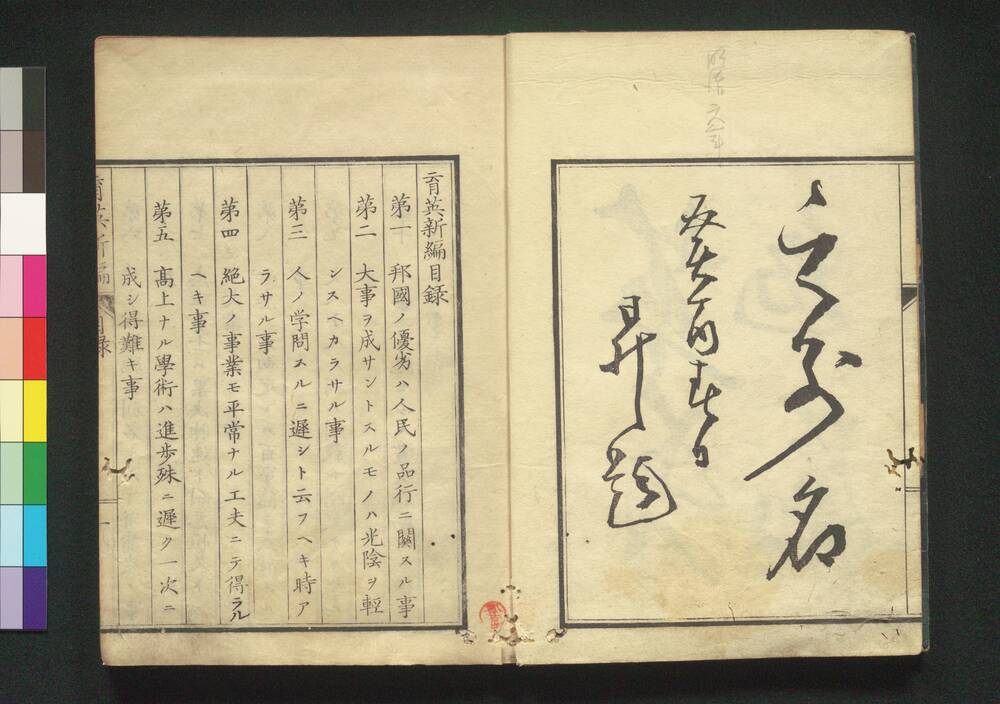 名
癸酉春日
題
育英新編目録
第一 邦國ノ優劣ハ人民ノ品行ニ関スル事
第二 大事ヲ成サントスルモノハ光陰ヲ輕
ンスヘカラサル事
第三 人ノ学問スルニ遲シト云フヘキ時ア
ラサル事
第四 絶大ノ事業モ平常ナル工夫ニテ得ラル
ヘキ事
第五 髙上ナル學術ハ進歩殊ニ遲ク一次ニ
成シ得難キ事
育英新編 目録